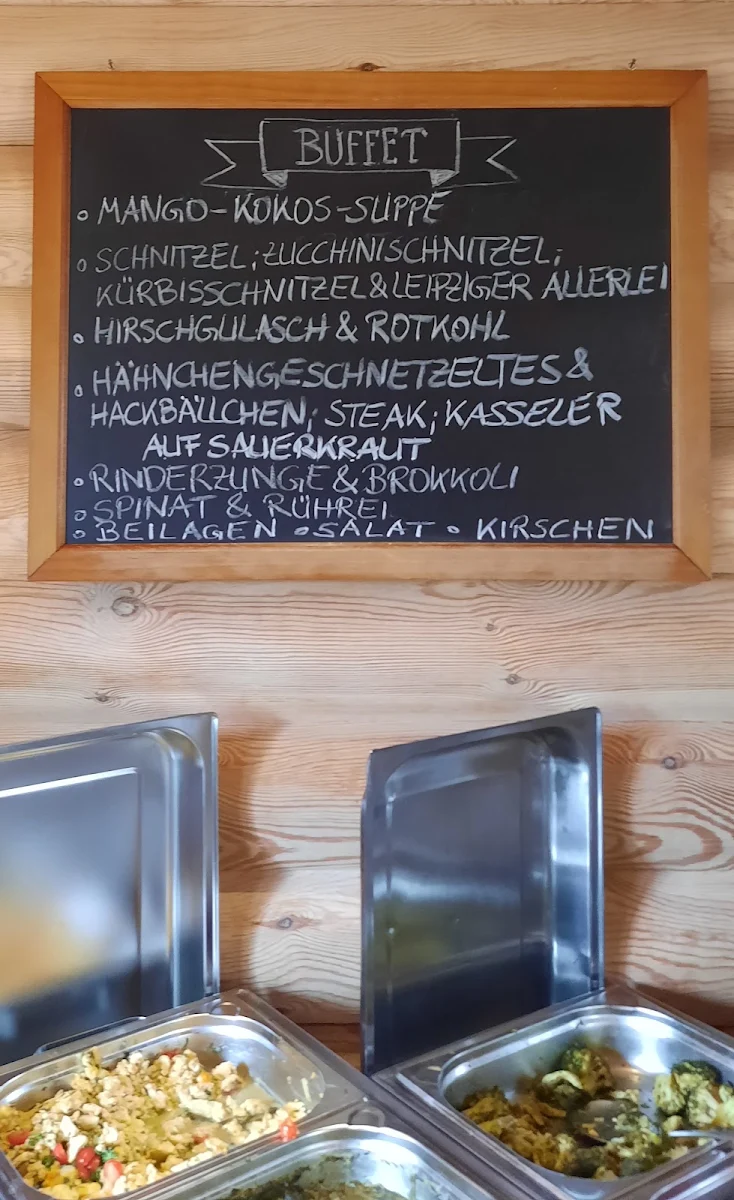 BUFFET
◦ MANGO-KOKOS-SUPPE
◦ SCHNITZEL; ZUCCHINISCHNITZEL;
KÜRBISSCHNITZEL & LEIPZIGER ALLERLEI
◦ HIRSCHGULASCH & ROTKOHL
◦ HÄHNCHENGESCHNETZELTES &
HACKBÄLLCHEN; STEAK; KASSELER
AUF SAUERKRAUT
◦ RINDERZUNGE & BROKKOLI
◦ SPINAT & RÜHREI
◦ BEILAGEN ◦ SALAT ◦ KIRSCHEN